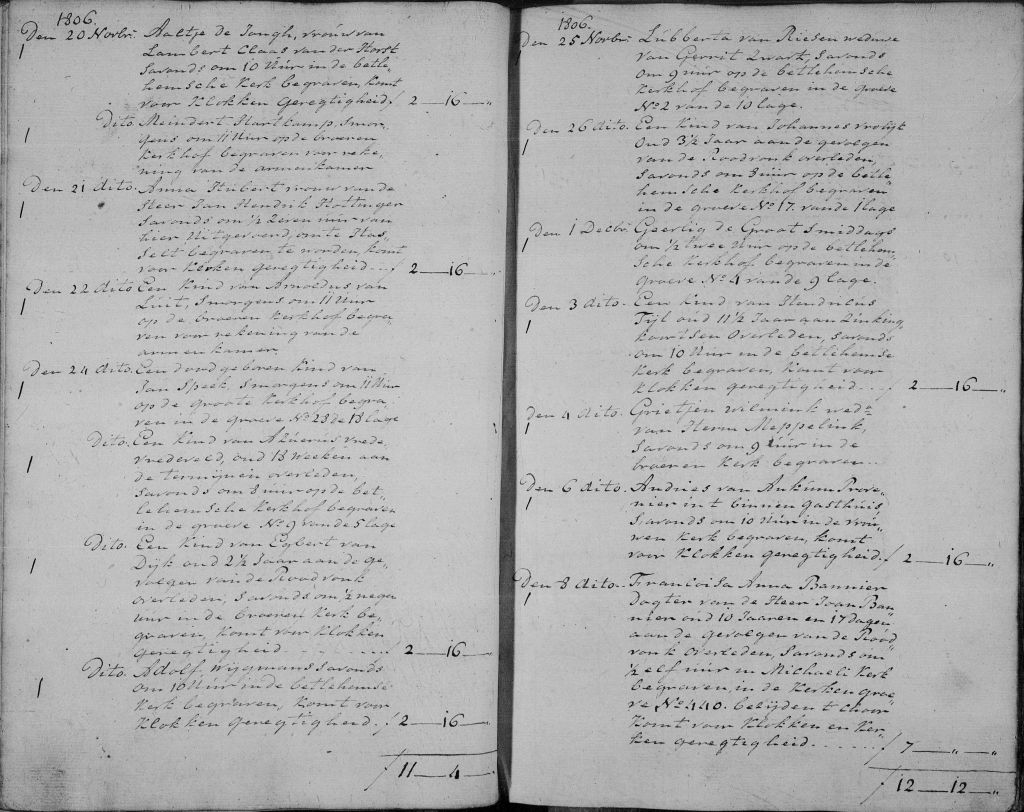 1806.
Den 20 Novbr. Aaltje de Jongh, vrouw van
Lambert Claas van der Horst
Savonds om 10 Uur in de betle,,
hemsche Kerk begraven, komt
voor Klokken Geregtigheid ƒ 2—16—"
Dito. Meindert Hartkamp Smor,,
gens om 11 Uur op de broeren
Kerkhof begraven voor reke,,
ning van de armenkamer
Den 21 dito. Anna Hubert vrouw van de
Heer Jan Hendrik Hottinger
Savonds om ½ 7eren uur van
hier Uitgevoerd, om te Has,,
selt begraven te worden, komt
voor Klokken geregtigheid .. ƒ 2—16—"
Den 22 dito Een Kind van Arnoldus van
Luit, Smorgens om 11 Uur
op de broeren Kerkhof begra,,
ven voor rekening van de
armenkamer.
Den 24 dito. Een dood geboren Kind van
Jan Speek, Smorgens om 11 Uur
op de groote Kerkhof begra,,
ven in de groeve No 23 de 18 lage
Dito. Een Kind van vrede,,
vredeveld, oud 18 weeken aan
de termijnen overleden,
Savonds om 8 uur op de bet,,
lehemsche Kerkhof begraven
in de groeve No 9 van de 5 lage
Dito. Een Kind van Egbert van
Dijk oud 2½ Jaar aan de ge,,
volgen van de Roodvonk
overleden, Savonds om ½ nega
uur in de broeren Kerk be,,
graven, Komt voor Klokken
geregtigheid ..... ƒ 2—16—"
Dito. Adolf Wijgmans Savonds
om 10 Uur in de betlehemsé
Kerk begraven, Komt voor
Klokken geregtigheid . ƒ 2—16—"
ƒ 11—4—"
1806.
Den 25 Novbr. Lubberta van Riesen weduwe
van Gerrit Zwart, Savonds
om 9 uur op de betlehemsche
Kerkhof begraven in de groeve
No 2 van de 10 lage.
Den 26 dito. Een Kind van Johannes vrolijk
Oud 3½ Jaar aan de gevolgen
van de Roodvonk overleden,
Savonds om 8 uur op de betle,,
hemsche Kerkhof begraven
in de groeve No 17. van de 1 lage
Den 1 Decbr. Geertig de Groot Smiddags
om ½ twee Uur op de betlehem,,
sche Kerkhof begraven in de
groeve No 4 van de 9 lage.
Den 3 dito. Een Kind van Hendricus
Tijl oud 11½ Jaar aan Zinking,,
koortsen Overleden, Savonds
om 10 Uur in de betlehemsé
Kerk begraven, komt voor
Klokken geregtigheid ... ƒ 2—16—"
Den 4 dito. Grietjen Wilmink wede
van Herm Meppelink,
Savonds om 9 Uur in de
broeren Kerk begraven ..
Den 6 dito. Andries van Ankum Prove,,
nier in t binnen gasthuis,
Savonds om 10 Uur in de vrou,,
wen Kerk begraven, Komt
voor Klokken geregtigheid. ƒ 2—16—"
Den 8 dito. Francoisa Anna Bannier
Dogter van de Heer Joan Ban,,
nier oud 10 Jaaren en 17 dagen
aan de gevolgen van de Rood,,
vonk Overleden, Savonds om
½ elf uur in Michaeli Kerk
begraven, in de Kerken groe,,
ve No 440. bezijden t Choor
Komt voor Klokken en Ker,,
ken geregtigheid ...... ƒ 7—"—"
ƒ 12—12—"